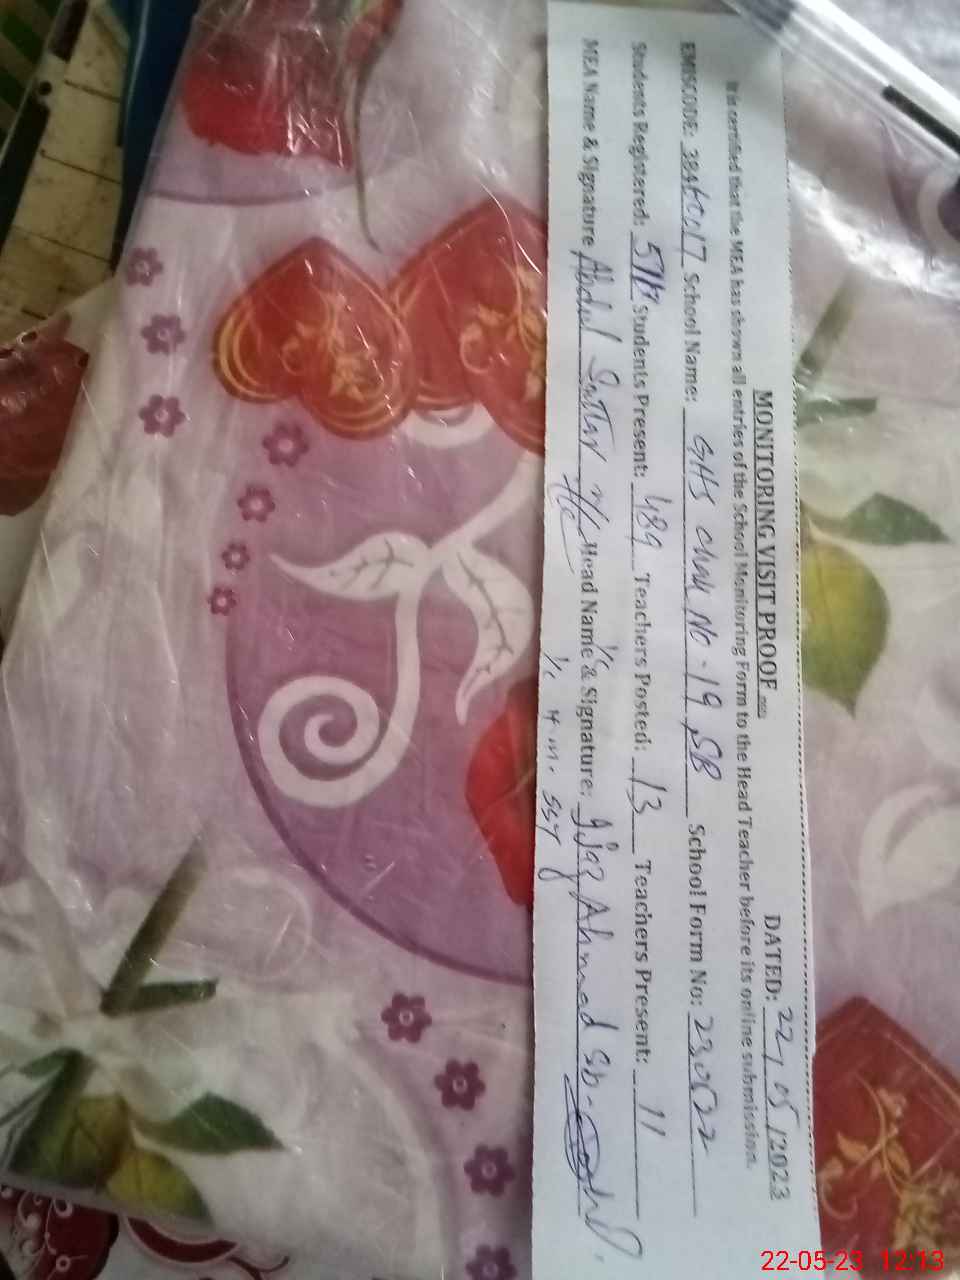 MONITORING VISIT PROOF
DATED: 22/05/2023
It is certified that the MEA has shown all entries of the School Monitoring Form to the Head Teacher before its online submission.
EMISCODE: 38460017 School Name: GHS Chak No. 19 SB School Form No:
Students Registered: Students Present: 489 Teachers Posted: 13 Teachers Present: 11
MEA Name & Signature Abdul Sattar Head Name & Signature: Ijaz Ahmad
I/C H.M. SST
22-05-23 12:13